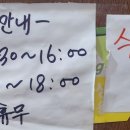 안내-
30~16:00
~18:00
휴무